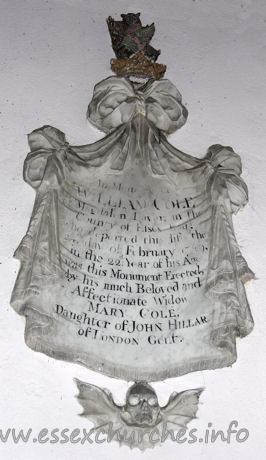 WILLIAM COLE
County of Essex
who departed this life the
day of February
in the 22. Year of his Age
was this Monument Erected,
by his much Beloved and
Affectionate Widow
MARY COLE,
Daughter of JOHN HILLAR
of LONDON Gent.
www.essexchurches.info